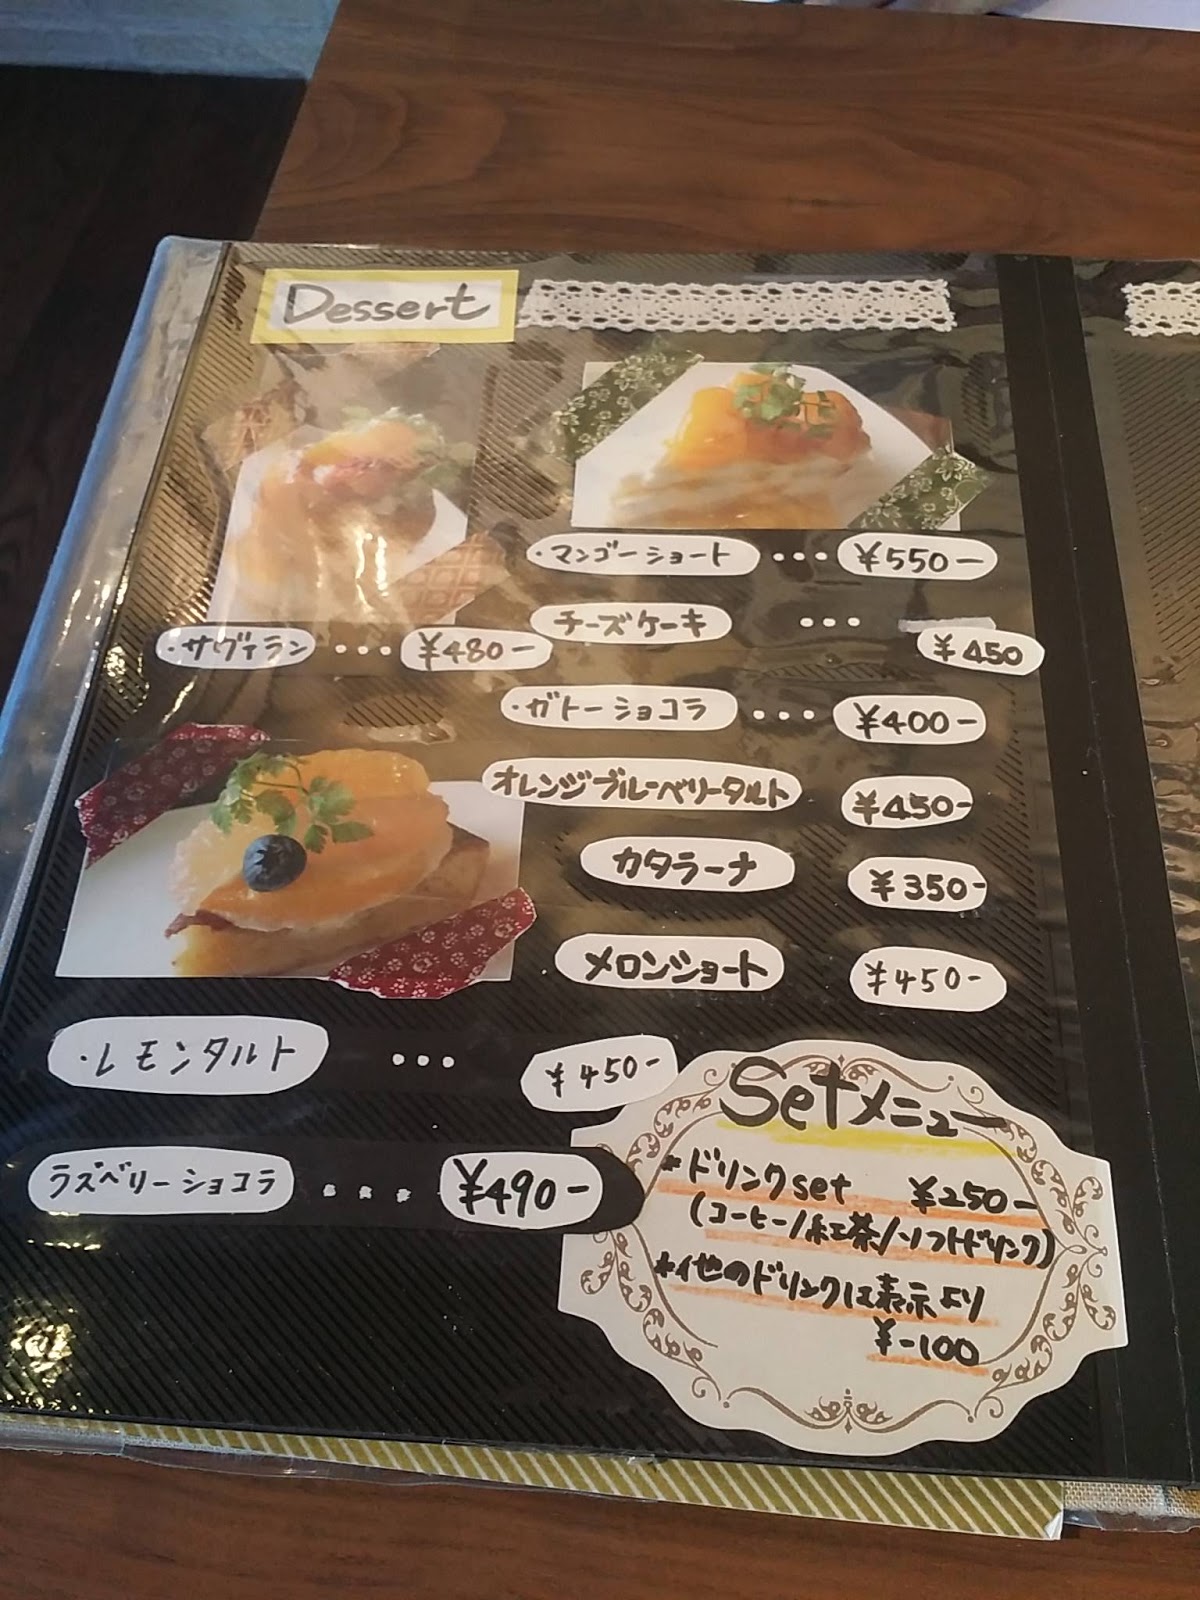 Dessert
・マンゴーショート ・・・ ¥550-
チーズケーキ ・・・ ¥450
・サヴァラン ・・・ ¥480-
・ガトーショコラ ・・・ ¥400-
オレンジブルーベリータルト ¥450-
カタラーナ ¥350-
メロンショート ¥450-
・レモンタルト ・・・ ¥450-
ラズベリーショコラ ・・・・ ¥490-
Setメニュー
*ドリンクset ¥250-
(コーヒー/紅茶/ソフトドリンク)
*他のドリンクは表示より
¥-100